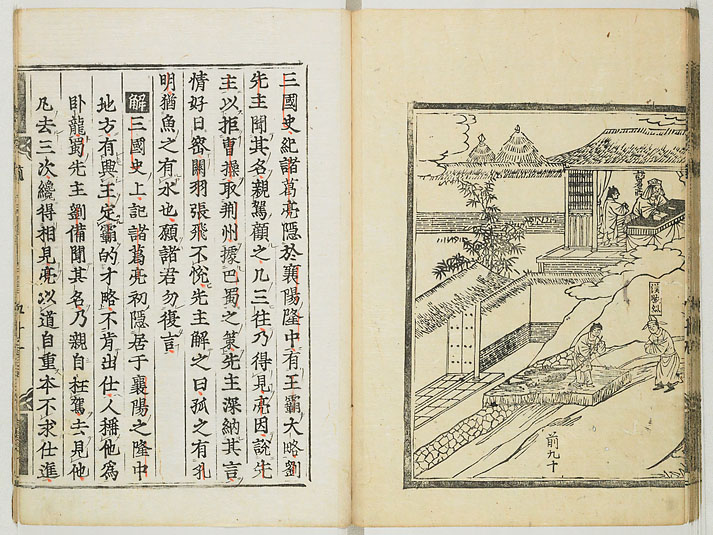 前九十
三國史紀諸葛亮隱於襄陽隆中有王霸大略劉
先主聞其名親駕顧之凡三往乃得見亮因說先
主以拒曹操取荆州據巴蜀之策先主深納其言
情好日密關羽張飛不悅先主解之曰孤之有孔
明猶魚之有水也願諸君勿復言
解三國史上記諸葛亮初隱居于襄陽之隆中
地方有興王定霸的才略不肯出仕人稱他為
卧龍蜀先主劉備聞其名乃親自枉駕去見他
凡去三次纔得相見亮以道自重本不求仕進